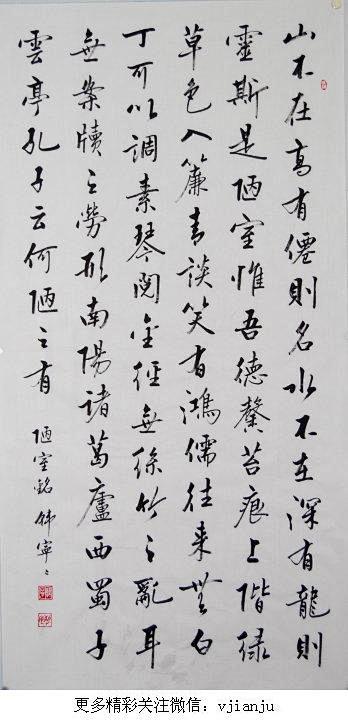 山不在高有僊則名水不在深有龍則
靈斯是陋室惟吾德馨苔痕上階緑
草色入簾青談笑有鴻儒往来無白
丁可以調素琴閲金經無絲竹之亂耳
無案牘之勞形南陽諸葛廬西蜀子
雲亭孔子云何陋之有
陋室銘 韩寧寧
更多精彩关注微信：vjianju